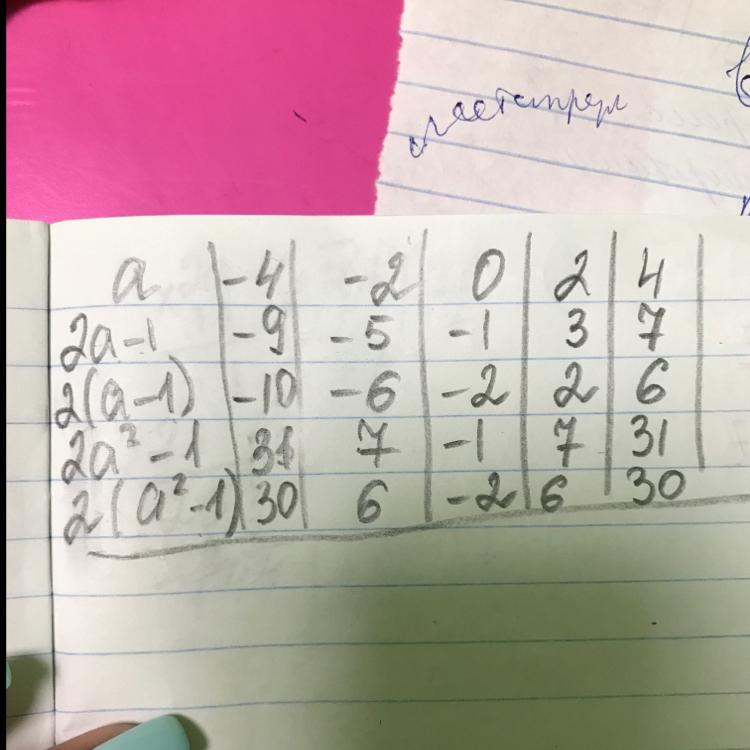 a | -4 | -2 | 0 | 2 | 4 |
2a-1 | -9 | -5 | -1 | 3 | 7
2(a-1) | -10 | -6 | -2 | 2 | 6
2a²-1 | 31 | 7 | -1 | 7 | 31
2(a²-1) | 30 | 6 | -2 | 6 | 30